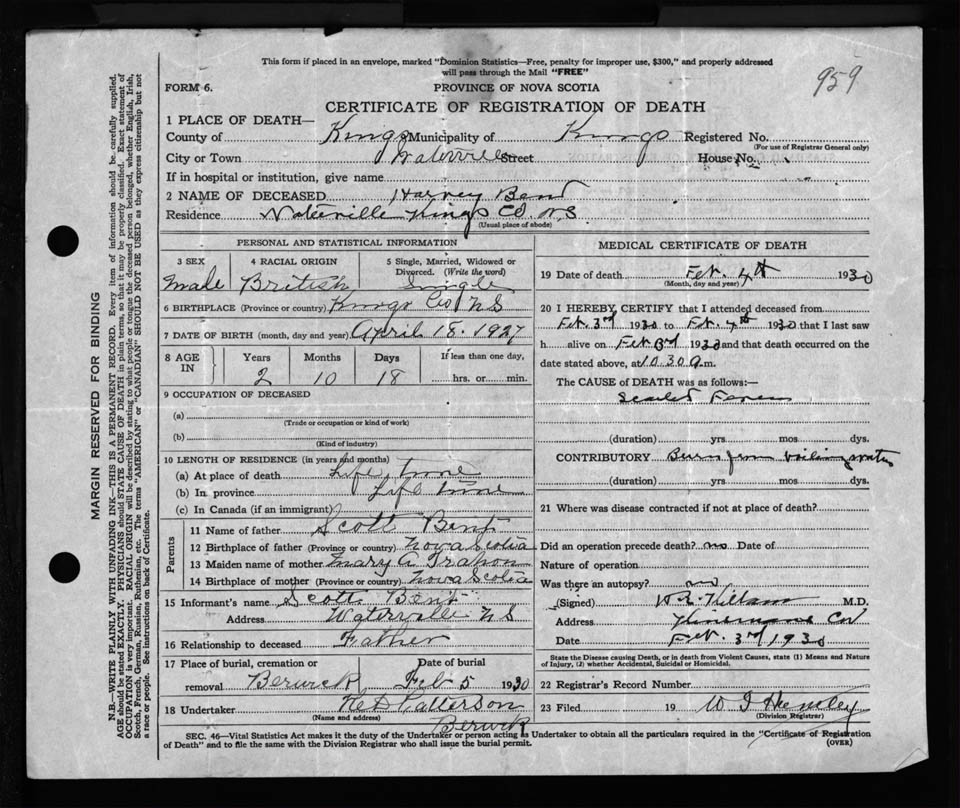 This form if placed in an envelope, marked "Dominion Statistics—Free, penalty for improper use, $300," and properly addressed
will pass through the Mail "FREE"
959
FORM 6.
PROVINCE OF NOVA SCOTIA
CERTIFICATE OF REGISTRATION OF DEATH
1 PLACE OF DEATH—
County of Kings Municipality of Kings Registered No.
(For use of Registrar General only)
City or Town Waterville Street House No.
If in hospital or institution, give name
2 NAME OF DECEASED Harvey Bent
Residence Waterville Kings Co. N S
(Usual place of abode)
PERSONAL AND STATISTICAL INFORMATION
3 SEX 4 RACIAL ORIGIN 5 Single, Married, Widowed or
Divorced. (Write the word)
Male British Single
6 BIRTHPLACE (Province or country) Kings Co N S
7 DATE OF BIRTH (month, day and year) April 18. 1927
8 AGE IN Years Months Days If less than one day,
2 10 18 hrs. or min.
9 OCCUPATION OF DECEASED
(a)
(Trade or occupation or kind of work)
(b)
(Kind of industry)
10 LENGTH OF RESIDENCE (in years and months)
(a) At place of death Life time
(b) In province Life time
(c) In Canada (if an immigrant)
Parents
11 Name of father Scott Bent
12 Birthplace of father (Province or country) Nova Scotia
13 Maiden name of mother Mary A
14 Birthplace of mother (Province or country) Nova Scotia
15 Informant's name Scott Bent
Address Waterville N S
16 Relationship to deceased Father
17 Place of burial, cremation or Date of burial
removal Berwick Feb 5 1930
18 Undertaker Patterson
(Name and address)
Berwick
MEDICAL CERTIFICATE OF DEATH
19 Date of death Feb. 4th 1930
(Month, day and year)
20 I HEREBY CERTIFY that I attended deceased from
Feb. 3rd 1930 to Feb. 4th 1930 that I last saw
h alive on Feb 3rd 1930 and that death occurred on
date stated above, at 10.30 a.m.
The CAUSE OF DEATH was as follows:—
Scarlet Fever
(duration) yrs. mos. dys.
CONTRIBUTORY Burn from boiling water
(duration) yrs. mos. dys.
21 Where was disease contracted if not at place of death?
Did an operation precede death? no Date of
Nature of operation
Was there an autopsy? no
(Signed) Killam M.D.
Address
Date Feb. 3rd 1930
State the Disease causing Death, or in death from Violent Causes, state (1) Means and Nature
of Injury, (2) whether Accidental, Suicidal or Homicidal.
22 Registrar's Record Number
23 Filed 19
(Division Registrar)
SEC. 46—Vital Statistics Act makes it the duty of the Undertaker or person acting as Undertaker to obtain all the particulars required in the "Certificate of Registration
of Death" and to file the same with the Division Registrar who shall issue the burial permit. (OVER)
MARGIN RESERVED FOR BINDING
N.B.—WRITE PLAINLY WITH UNFADING INK—THIS IS A PERMANENT RECORD. Every item of information should be carefully supplied.
AGE should be stated EXACTLY. PHYSICIANS should STATE CAUSE OF DEATH in plain terms, so that it may be properly classified. Exact statement of
OCCUPATION is very important. RACIAL ORIGIN will be described by stating to what people or tongue the deceased person belonged, whether English, Irish,
Scotch, French, German, Russian, Ruthenian, etc. The terms "AMERICAN" or "CANADIAN" SHOULD NOT BE USED as they express citizenship but not
a race or people. See instructions on back of Certificate.